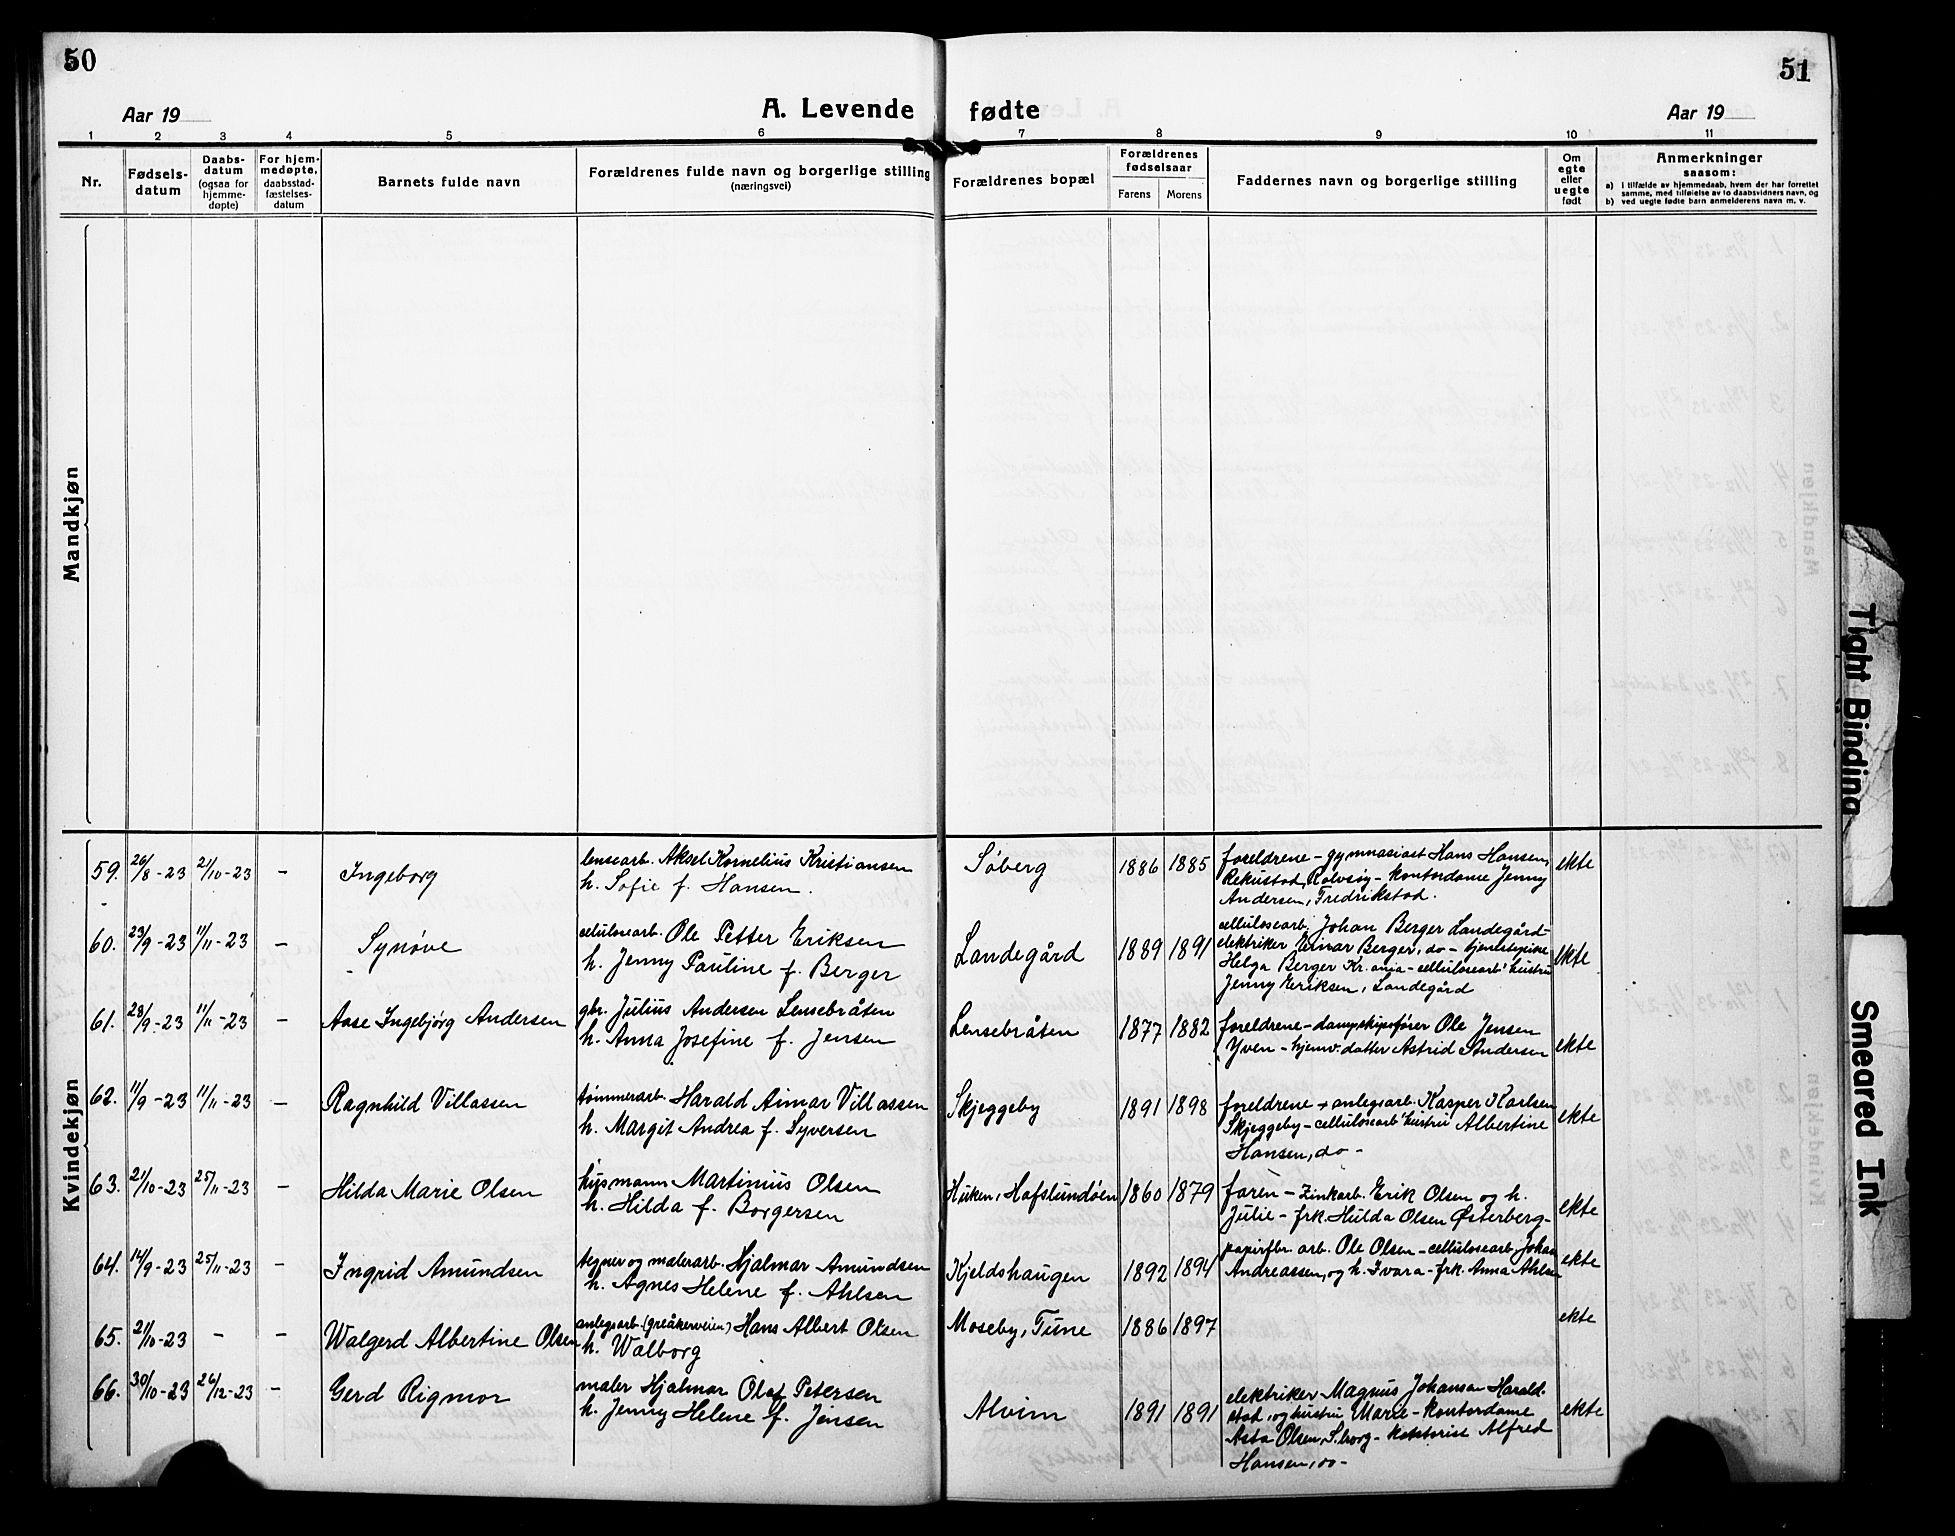 50
51
Aar 19
A. Levende fødte
Aar 19
1 2 3 4 5 6 7 8 9 10 11
Nr.
Fødsels-
datum
Daabs-
datum
(ogsaa for
hjemme-
døpte)
For hjem-
medøpte,
daabsstad-
fæstelses-
datum
Barnets fulde navn
Forældrenes fulde navn og borgerlige stilling
(næringsvei)
Forældrenes bopæl
Forældrenes
fødselsaar
Farens Morens
Faddernes navn og borgerlige stilling
Om
egte
eller
uegte
født
Anmerkninger
saasom:
a) i tilfælde av hjemmedaab, hvem der har forrettet
samme, med tilføielse av to daabsvidners navn, og
b) ved uegte fødte barn anmelderens navn m. v.
Mandkjøn
Kvindekjøn
59. 26/8-23 21/10-23 - Ingeborg
lensearb. Aksel Kornelius Kristiansen
h. Sofie f. Hansen.
Søberg 1886 1885
foreldrene - gymnasiast Hans Hansen,
Rekustad, Rolvsøy - kontordame Jenny
Andersen, Fredrikstad.
ekte
60. 23/9-23 11/11-23 - Synøve
celulosearb. Ole Petter Eriksen
h. Jenny Pauline f. Berger
Landegård 1889 1891
cellulosearb. Johan Berger Landegård-
elektriker Einar Berger, do - tjenestepike
Helga Berger Kr.ania - cellulosearb' hustru
Jenny Eriksen, Landegård
ekte
61. 23/9-23 11/11-23 - Aase Ingebjørg Andersen
gbr. Julius Andersen Lensebråten
h. Anna Josefine f. Jensen
Lensebråten 1877 1882
foreldrene - dampskipsfører Ole Jensen
Yven - hjemv. datter Astrid Andersen
ekte
62. 11/9-23 11/11-23 - Ragnhild Villassen
tømmerarb. Harald Aimar Villassen
h. Margit Andrea f. Syversen
Skjeggeby 1891 1898
foreldrene - anlegsarb. Kasper Karlsen
Skjeggeby - cellulosearb' hustru Albertine
Hansen, do -
ekte
63. 21/10-23 25/11-23 - Hilda Marie Olsen
husmann Martinius Olsen
h. Hilda f. Borgersen
Huken, Hafslundøen 1860 1879
faren - Zinkarb. Erik Olsen og h.
Julie - frk. Hulda Olsen Østerberg-
ekte
64. 14/9-23 25/11-23 - Ingrid Amundsen
tegner og malerarb. Hjalmar Amundsen
h. Agnes Helene f. Ahlsen
Kjeldshaugen 1892 1894
papirfbr. arb. Ole Olsen - cellulosearb. Johan
Andreassen, og h. Ivara - frk. Anna Ahlsen
ekte
65. 21/10-23 - - Walgerd Albertine Olsen
anlegsarb. (greåkerveien) Hans Albert Olsen
h. Walborg
Moseby, Tune 1886 1897
ekte
66. 30/10-23 26/12-23 - Gerd Rigmor
maler Hjalmar Olaf Petersen
h. Jenny Helene f. Jensen
Alvim 1891 1891
elektriker Magnus Johansen Harald-
stad, og hustru Marie - kontordame
Asta Olsen, S.borg - kontorist Alfred
Hansen, do -
ekte
Tight Binding
Smeared Ink